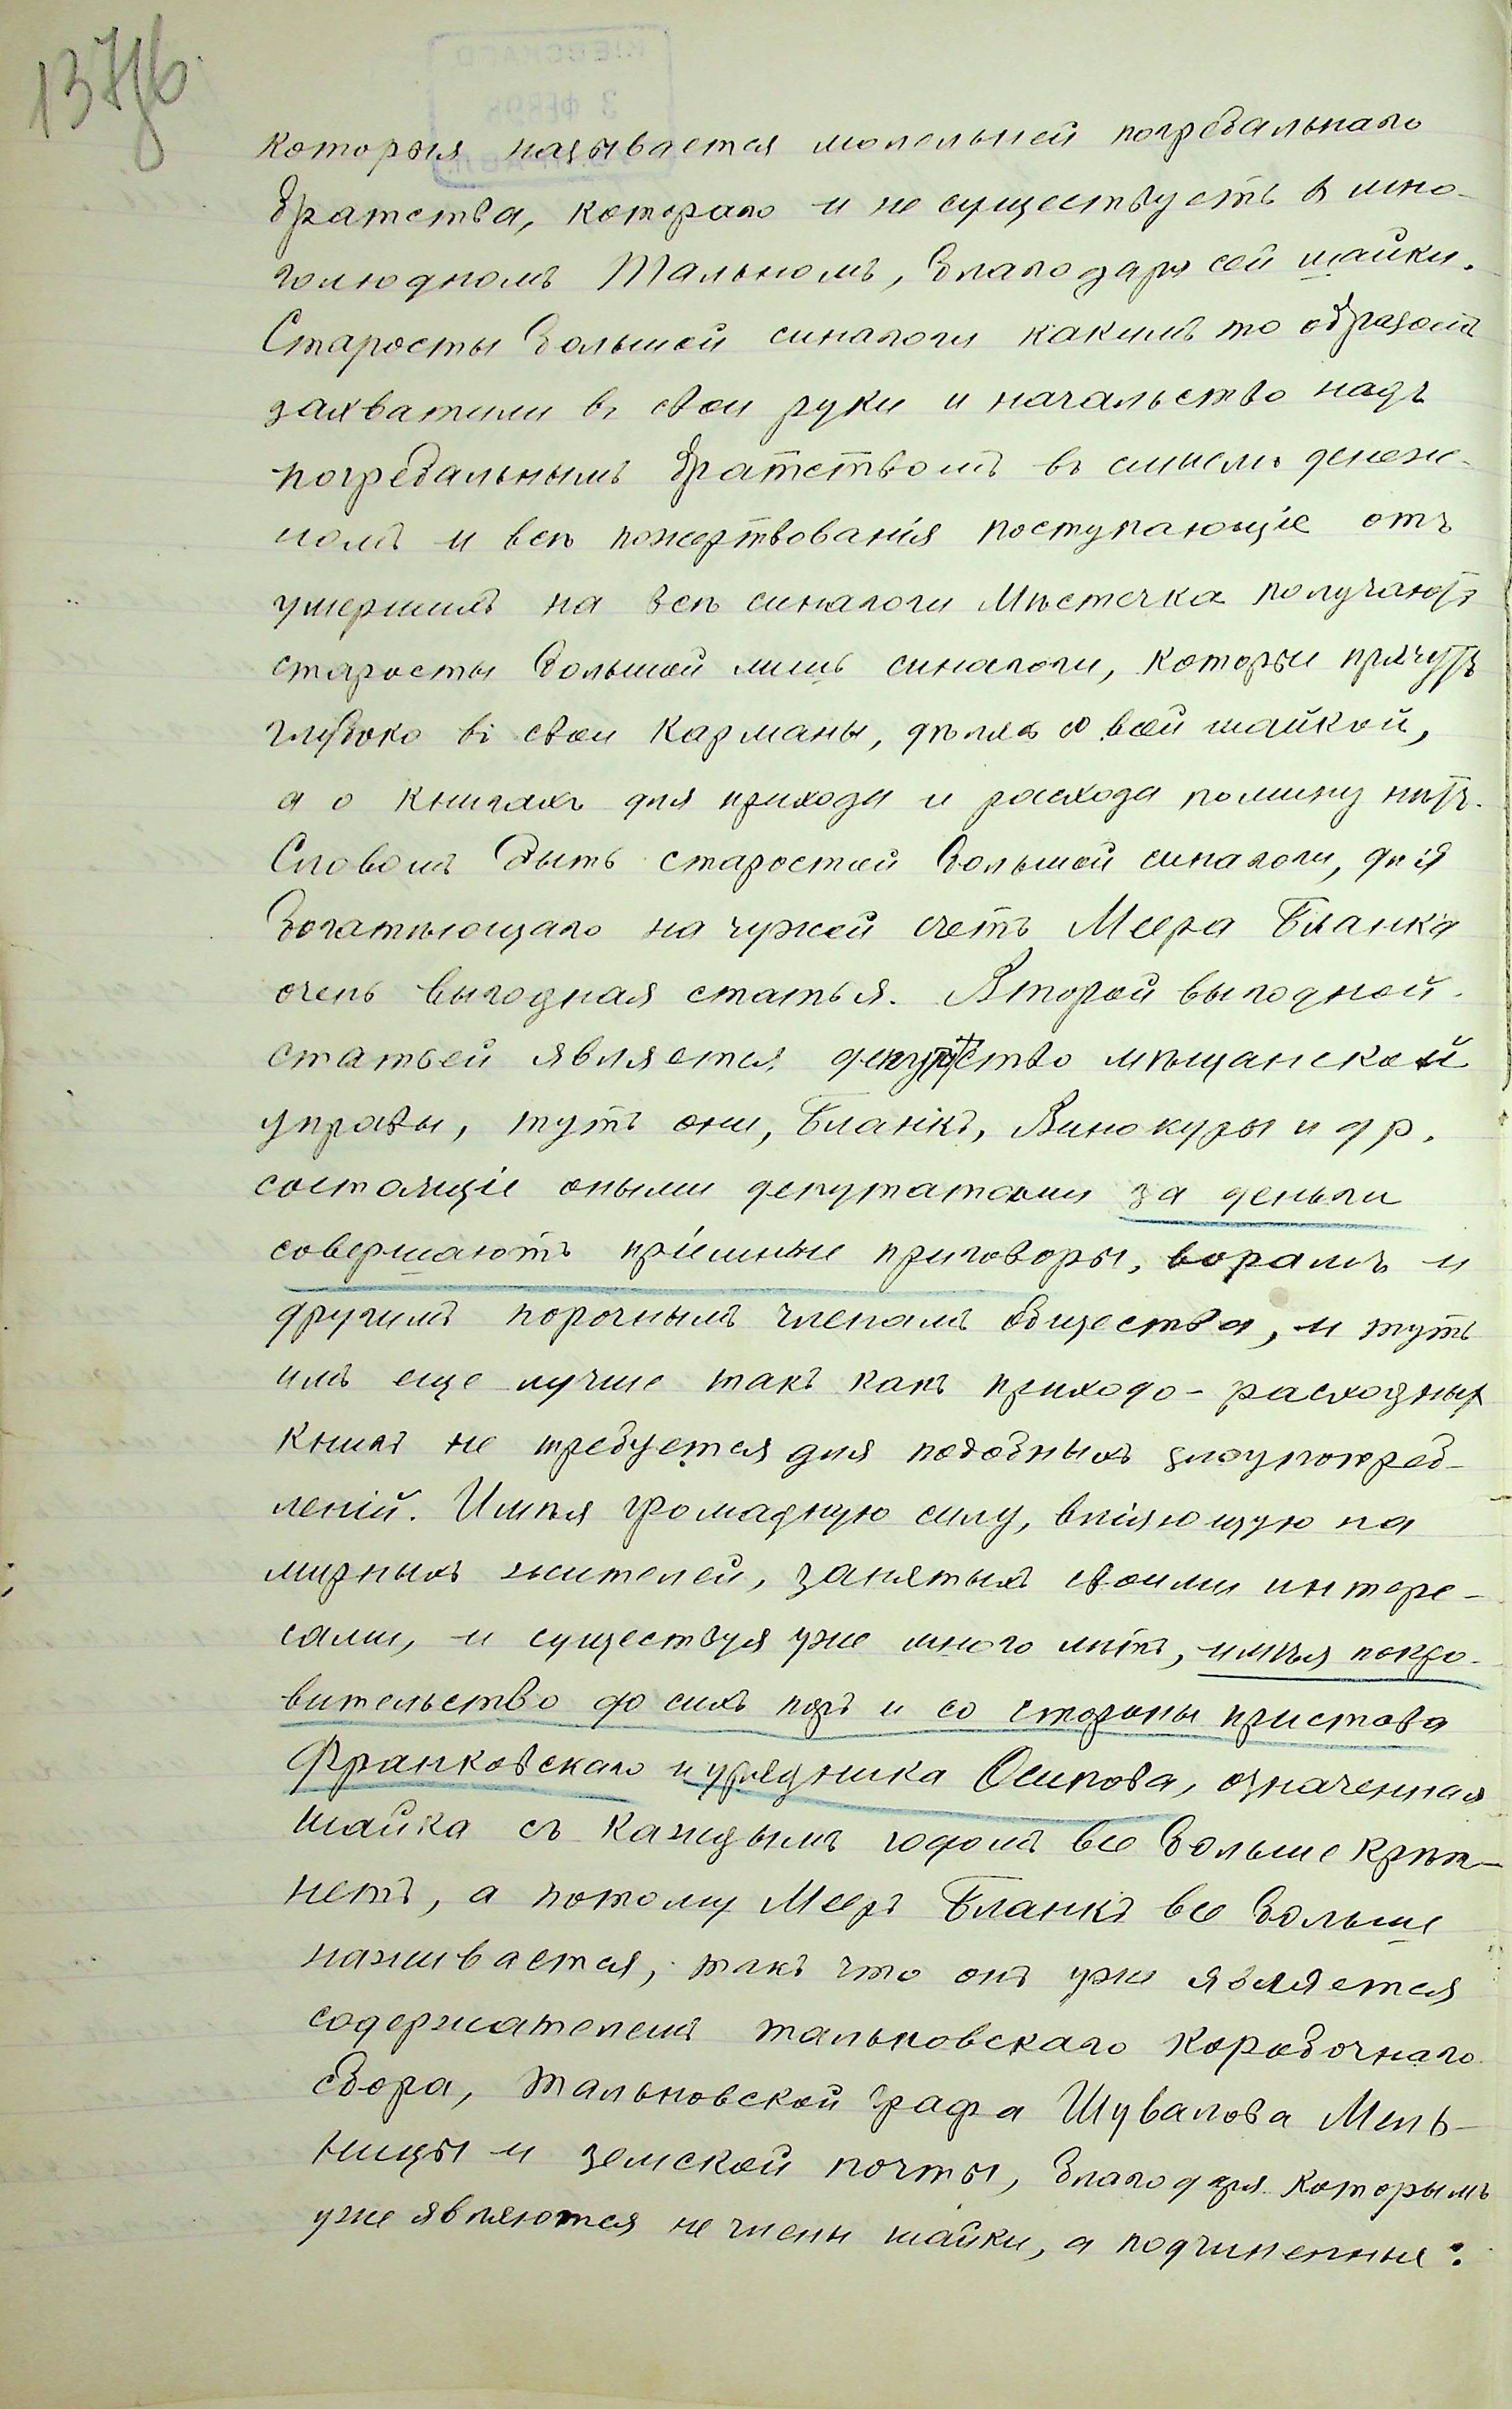 137об.
которыя называется молельней погребальнаго
братства, котораго и не существуетъ в мно-
голюдномъ Тальномъ, благодаря сей шайки.
Старосты большой синагоги какимъ то образомъ
захватили въ свои руки и начальство надъ
погребальнымъ братствомъ въ смыслѣ денеж-
номъ и всѣ пожертвованія поступающіе отъ
умершихъ на всѣ синагоги Мѣстечка получаютъ
старосты большой лишь синагоги, которые прячутъ
глубоко въ свои карманы, дѣлясь со всей шайкой,
а о книгахъ для прихода и расхода помину нѣтъ.
Словомъ быть старостой большой синагоги, для
богатѣющаго на чужой счетъ Меера Бланка
очень выгодная статья. Второй выгодной
статьей является депутатство мѣщанской
управы, тутъ они, Бланкъ, Винокуры и др.
состоящіе оными депутатами за деньги
совершаютъ пріемные приговоры, ворамъ и
другимъ порочнымъ членамъ общества, и тутъ
имъ еще лучше такъ какъ приходо-расходныхъ
книгъ не требуется для подобныхъ злоупотреб-
леній. Имѣя громадную силу, вліяющую на
мирныхъ жителей, занятыхъ своими интере-
сами, и существуя уже много лѣтъ, имѣя покро-
вительство до сихъ поръ и со стороны пристава
Франковскаго и урядника Осипова, означенная
шайка съ каждымъ годомъ все больше крѣп-
нетъ, а потому Мееръ Бланкъ все больше
наживается, такъ что онъ уже является
содержателемъ тальновскаго коробочнаго
сбора, тальновской графа Шувалова Мель-
ницы и земской почты, благодаря которымъ
уже являются не члены шайки, а подчиненные: